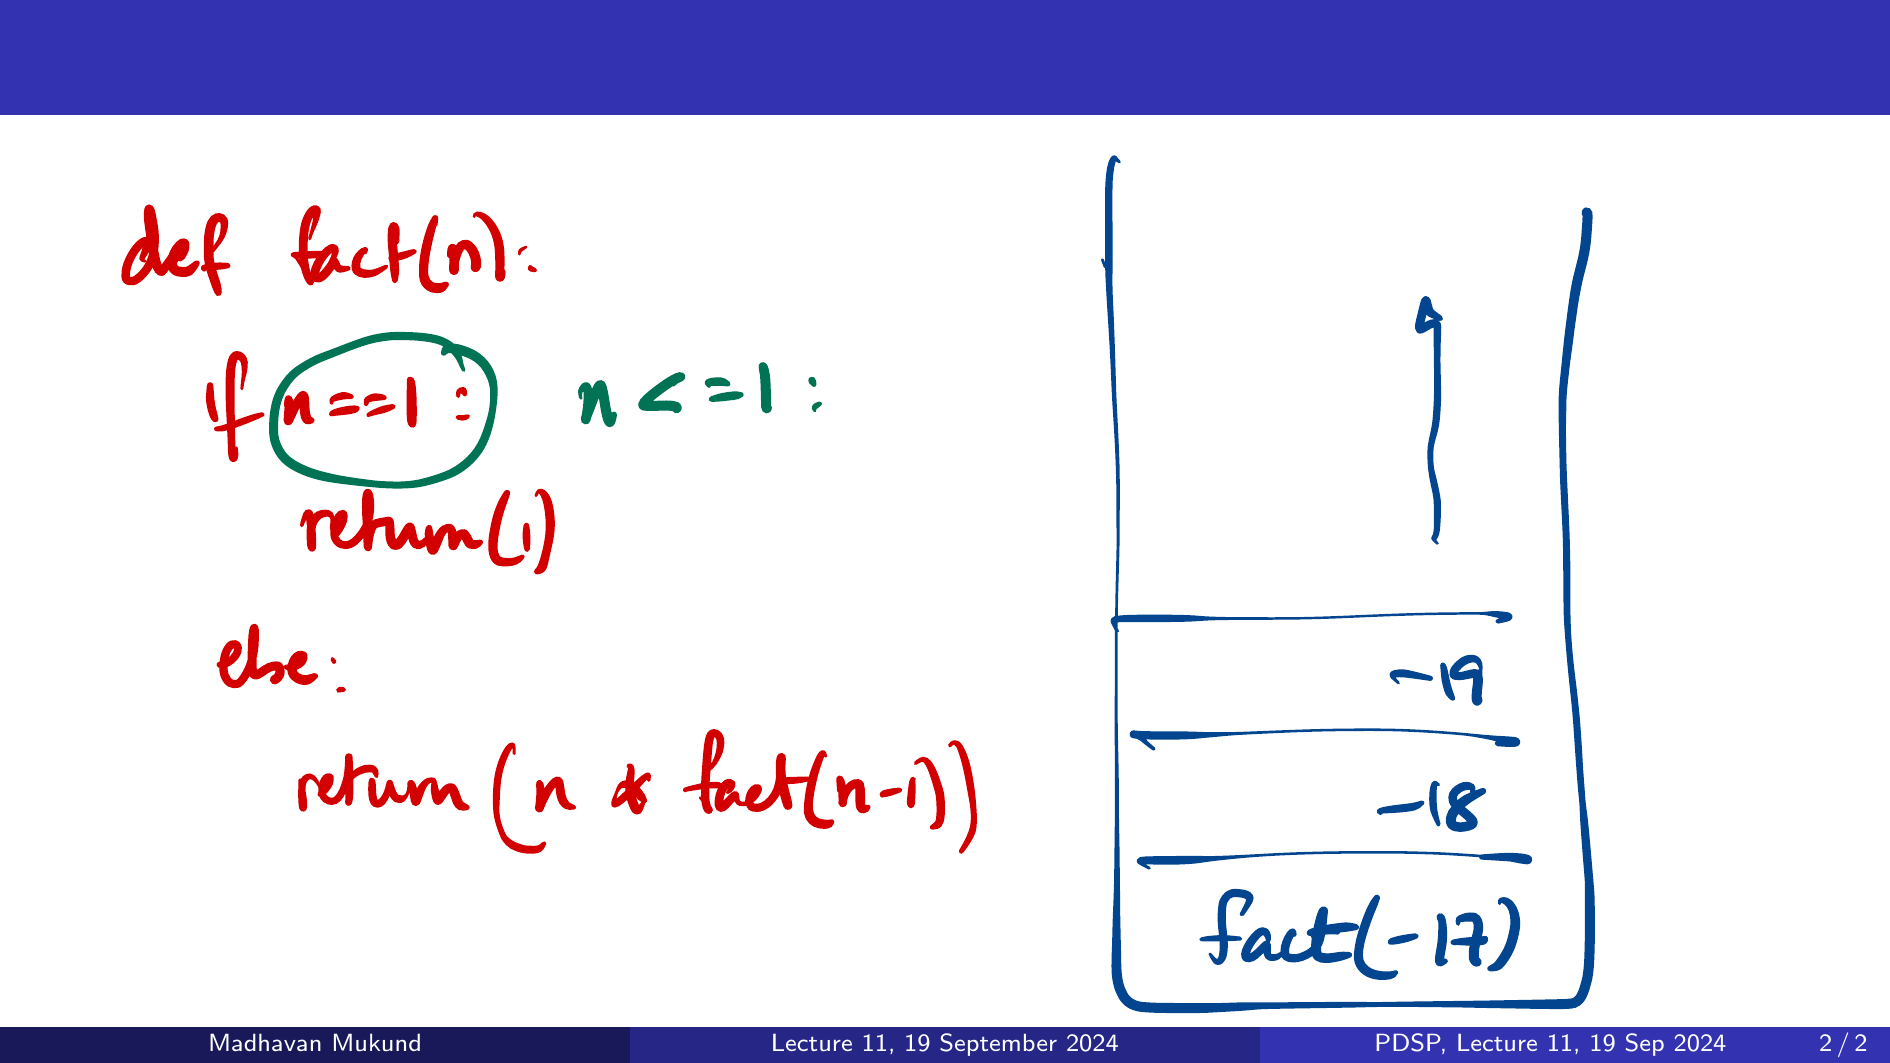 def fact(n):
if n==1: n<=1:
return(1)
else:
return(n * fact(n-1))
-19
-18
fact(-17)
Madhavan Mukund Lecture 11, 19 September 2024 PDSP, Lecture 11, 19 Sep 2024 2 / 2